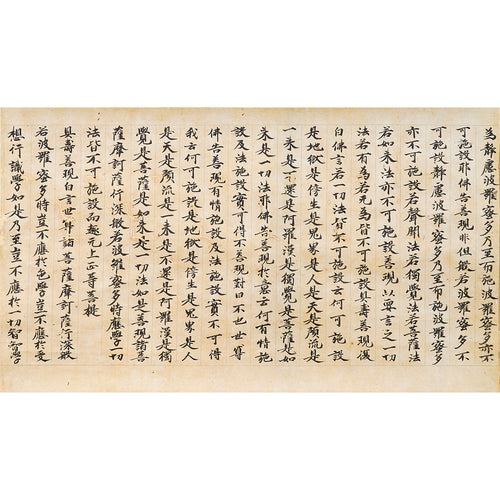 為靜慮波羅蜜多乃至布施波羅蜜多亦不
可施設耶佛告善現非但般若波羅蜜多不
可施設靜慮波羅蜜多乃至布施波羅蜜多
亦不可施設若聲聞法若獨覺法若菩薩法
若如來法亦不可施設善現以要言之一切
法若有為若无為皆不可施設具壽善現復
白佛言若一切法皆不可施設云何可施設
是地獄是傍生是鬼界是人是天是預流是
一來是不還是阿羅漢是獨覺是菩薩是如
來是一切法耶佛告善現於意云何有情施
設及法施設實可得不善現對曰不也世尊
佛告善現有情施設及法施設實不可得
我云何可施設是地獄是傍生是鬼界是人
是天是預流是一來是不還是阿羅漢是獨
覺是菩薩是如來是一切法如是善現諸菩
薩摩訶薩行深般若波羅蜜多時應學一切
法皆不可施設而趣无上正等菩提
具壽善現白言世尊諸菩薩摩訶薩行深般
若波羅蜜多時豈不應於色學豈不應於受
想行識學如是乃至豈不應於一切智智學